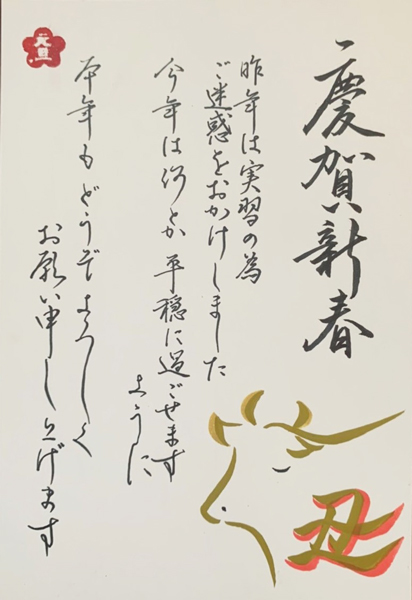 慶賀新春
昨年は実習の為
ご迷惑をおかけしました
今年は何とか平穏に過ごせます
ように
本年もどうぞよろしく
お願い申し上げます
元旦
丑